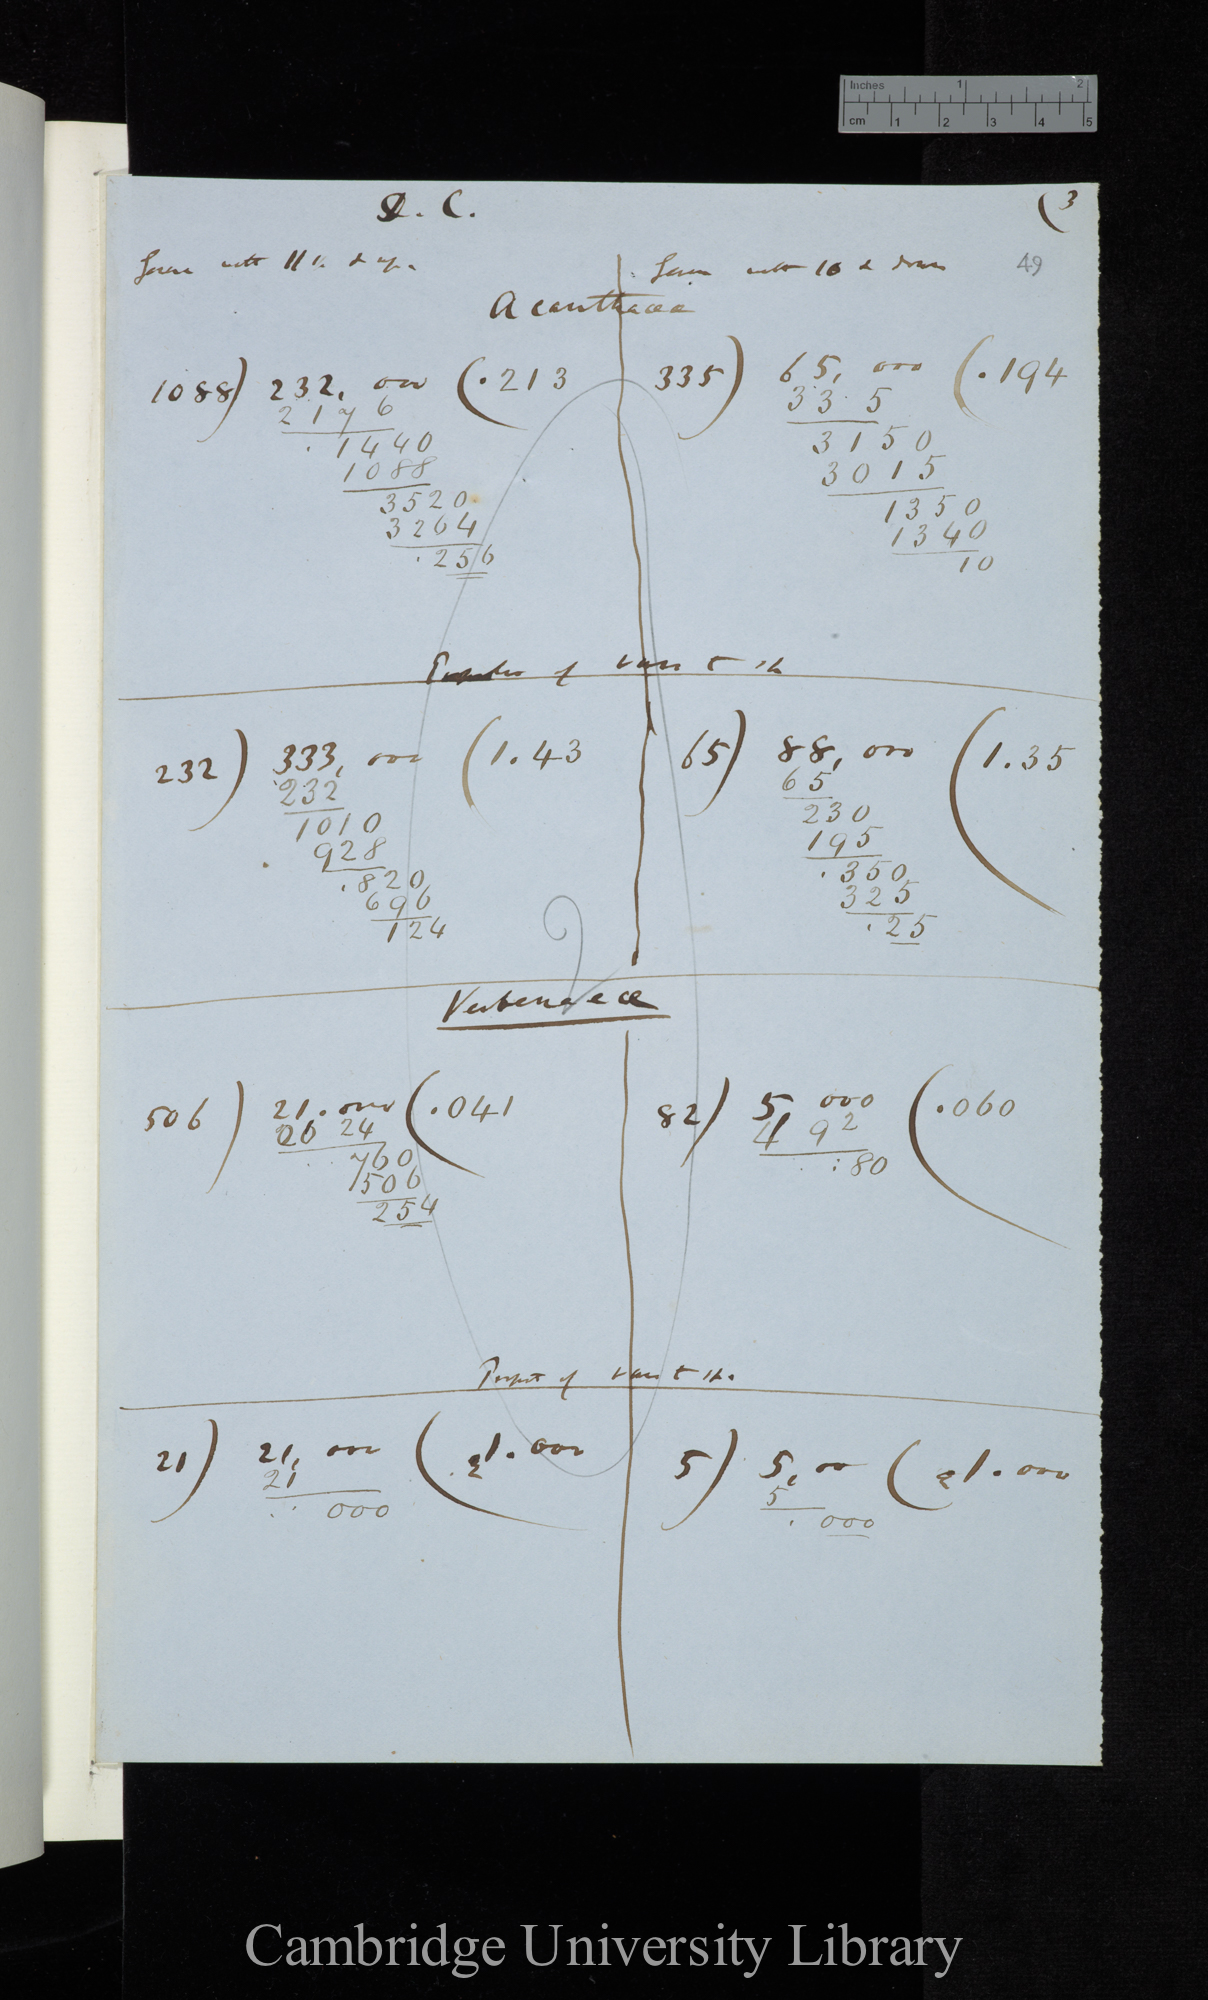 Inches 1 2
cm 1 2 3 4 5
D. C.
(3
Genera with 11 & up.
Genera with 10 & down
49
Acanthaceæ
1088) 232, 000 (.213
2176
1440
1088
3520
3264
256
335) 65, 000 (.194
33 5
3150
3015
1350
1340
10
of vars
232) 333, 000 (1.43
232
1010
928
820
696
124
65) 88, 000 (1.35
65
230
195
350
325
25
Verbenaceæ
506) 21.000 (.041
20 24
760
506
254
82) 5, 000 (.060
4 92
80
of vars
21) 21, 000 (1.000
21
000
5) 5, 00 (1.000
5
000
Cambridge University Library